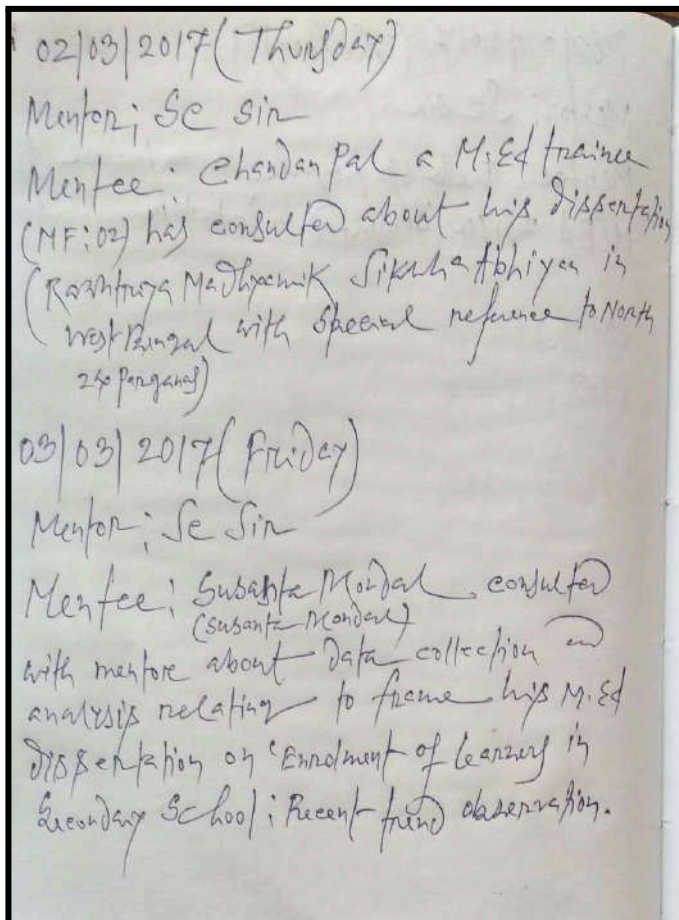 02/03/2017 (Thursday)
Mentor; Sc Sir
Mentee: Chandan Pal a M.Ed trainee
(MF:02) has consulted about his dissertation
(Rashtriya Madhyamik Siksha Abhiyan in
West Bengal with special reference to North
24 Parganas)
03/03/2017 (Friday)
Mentor; Sc Sir
Mentee: Susanta Mondal consulted
(Susanta Mondal)
with mentore about data collection and
analysis relating to frame his M.Ed
dissertation on 'Enrolment of learners in
Secondary School: Recent trend observation.